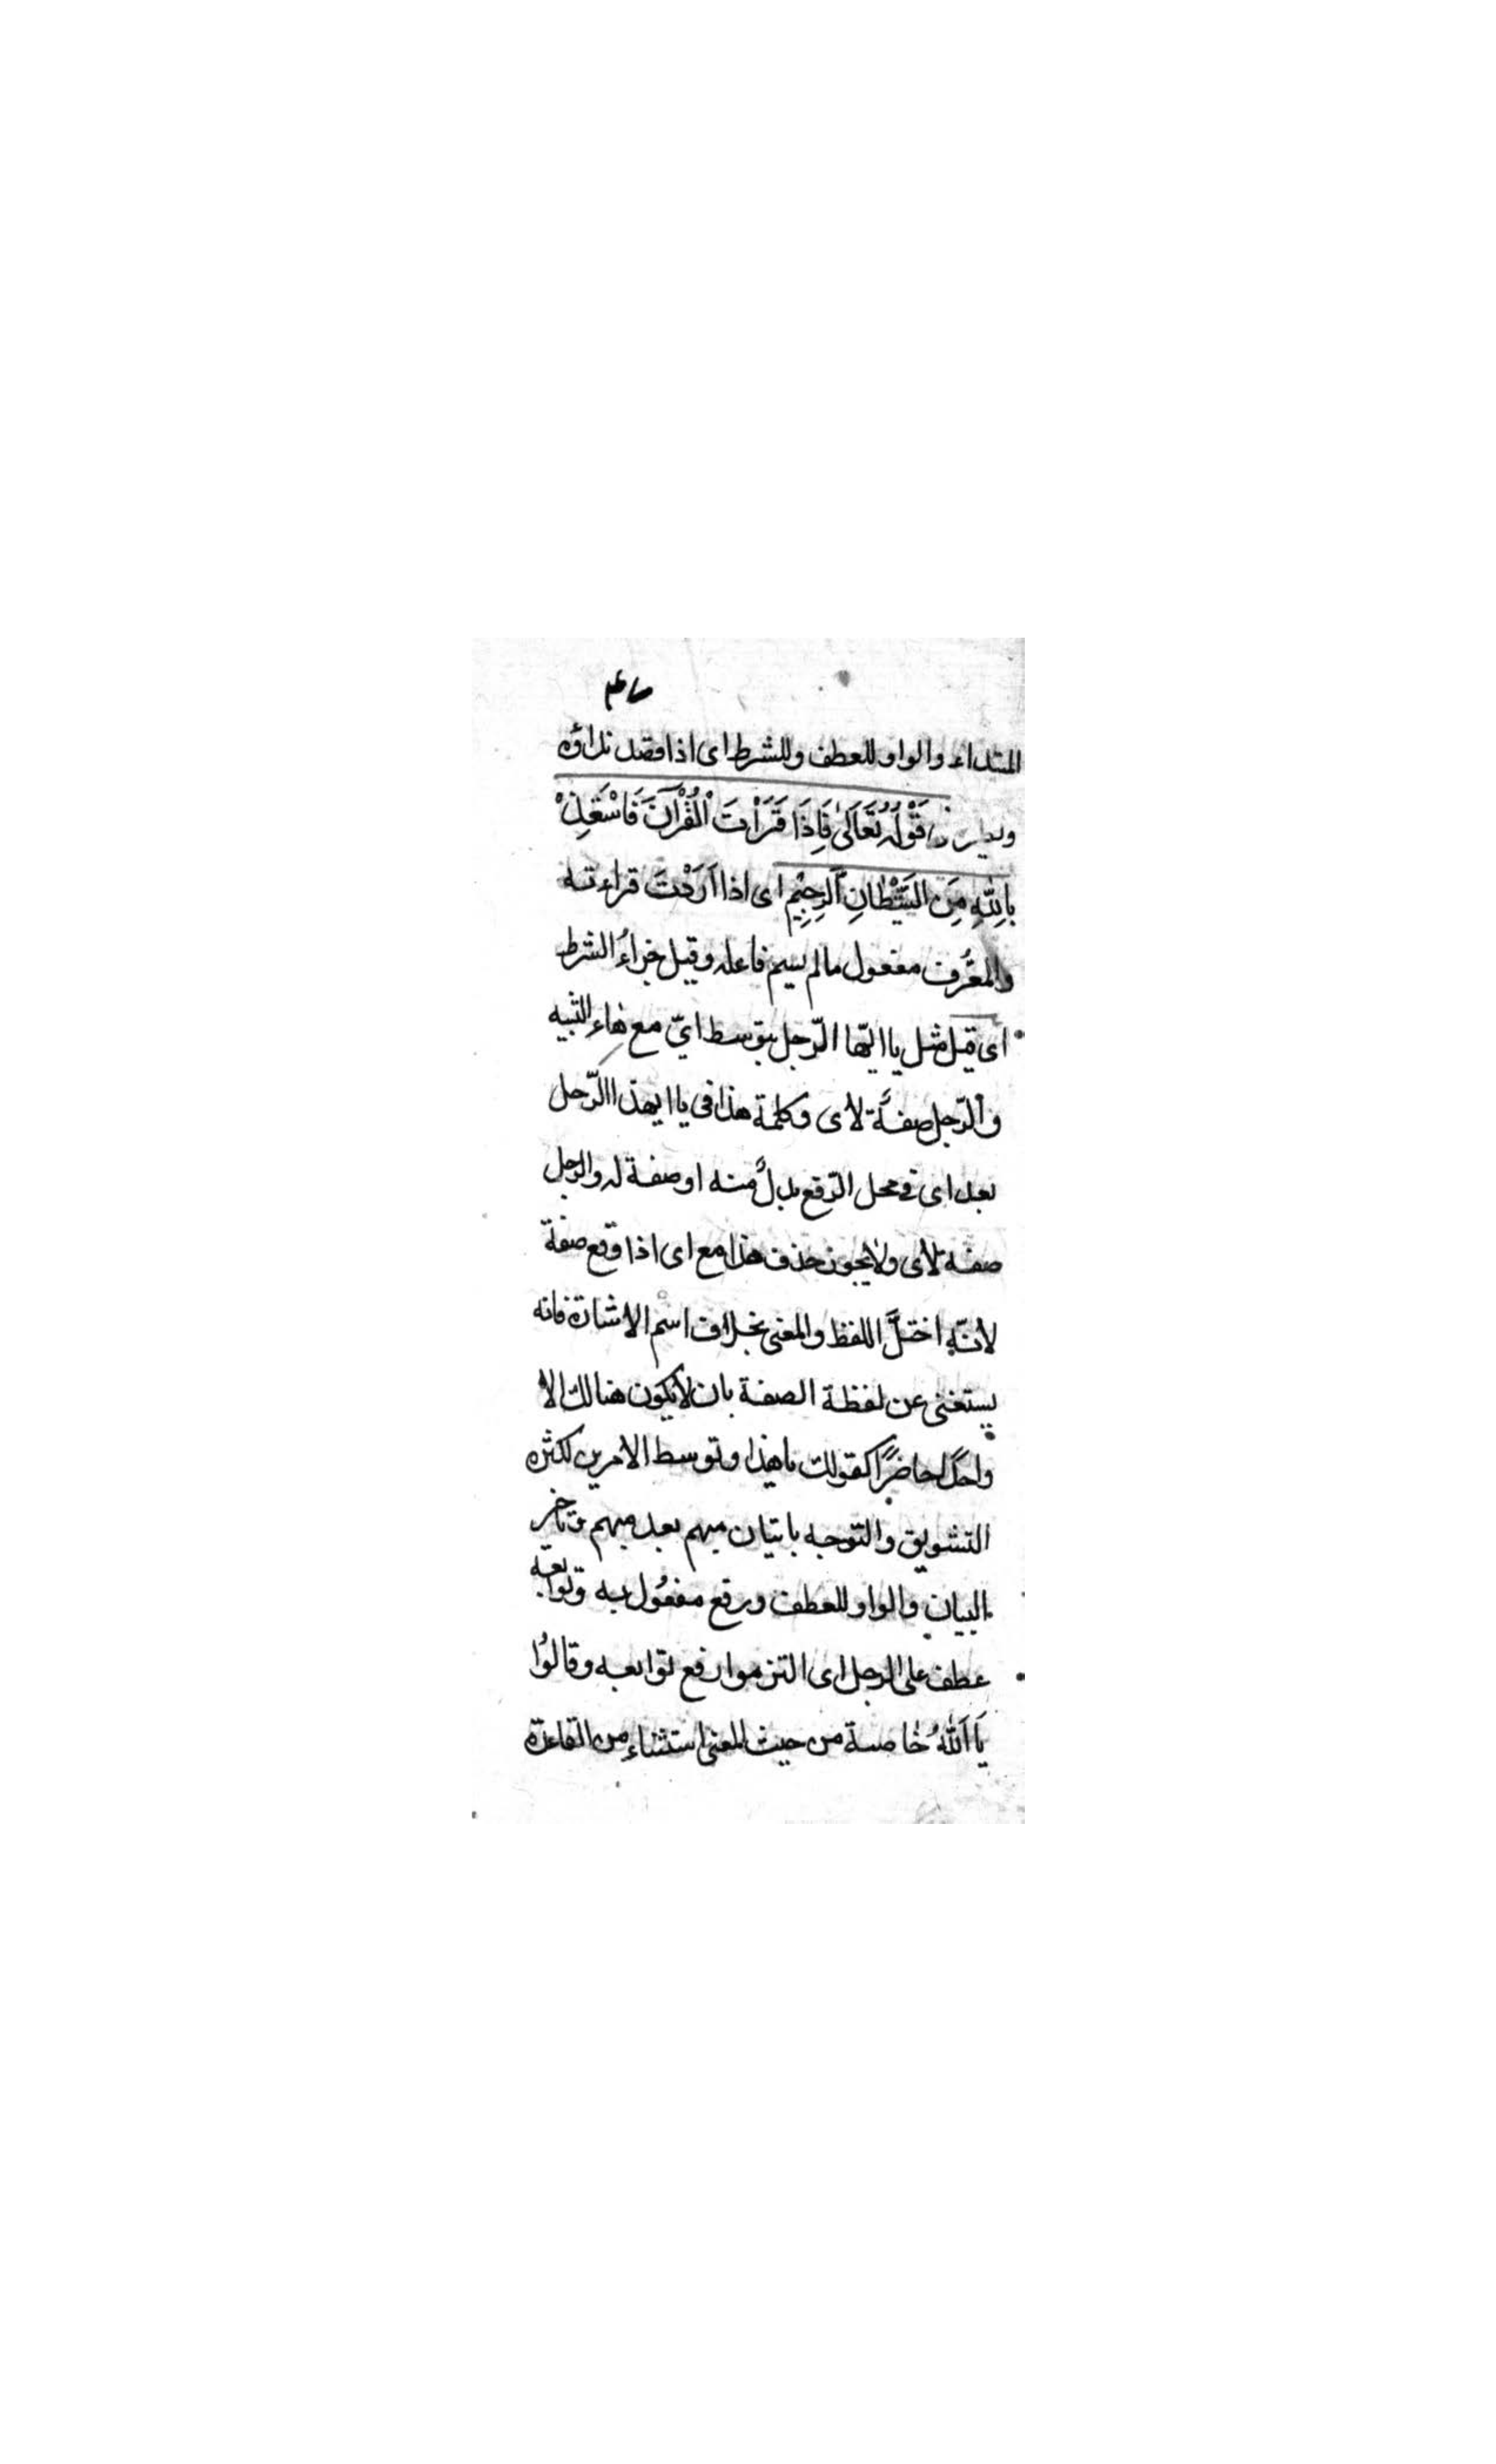 المبتداء والواو للعطف وللشرط اى اذا قصد نداؤه
قَوْلُهُ تَعَالَىٰ فَاِذَا قَرَأْتَ الْقُرْآنَ فَاسْتَعِذْ
بِاللّٰهِ مِنَ الشَّيْطَانِ الرَّجِيْمِ اى اذا اَرَدْتَ قراءته
والمعُرف مفعول مالم يسم فاعله وقيل جزاءُ الشرط
اى قيل مثل يا ايّها الرّجل بتوسط ايّ مع هاء التنبيه
والرّجل صفة لأى وكلمة هذا فى يا ايهذا الرّجل
بعد اى فى محل الرّفع بدلٌ منه او صفة له والرجل
صفة لأى ولا يجوز حذف هذا مع اى اذا وقع صفة
لأنّه اختلَّ اللفظ والمعنى بخلاف اسم الاشارة فانه
يستغنى عن لفظة الصفة بان لا يكون هنالك الا
واحدًا حاضرًا كقولك يا هذا وتوسط الامرين لكثرة
التشويق والتوجه باتيان مبهم بعد مبهم وتأخير
البيان والواو للعطف ورفع مفعُول به وتوابعه
عطف على الرجل اى التزموا رفع توابعه وقالوُا
يَا اَللّٰهُ خاصة من حيث المعنى استثناء من القاعدة